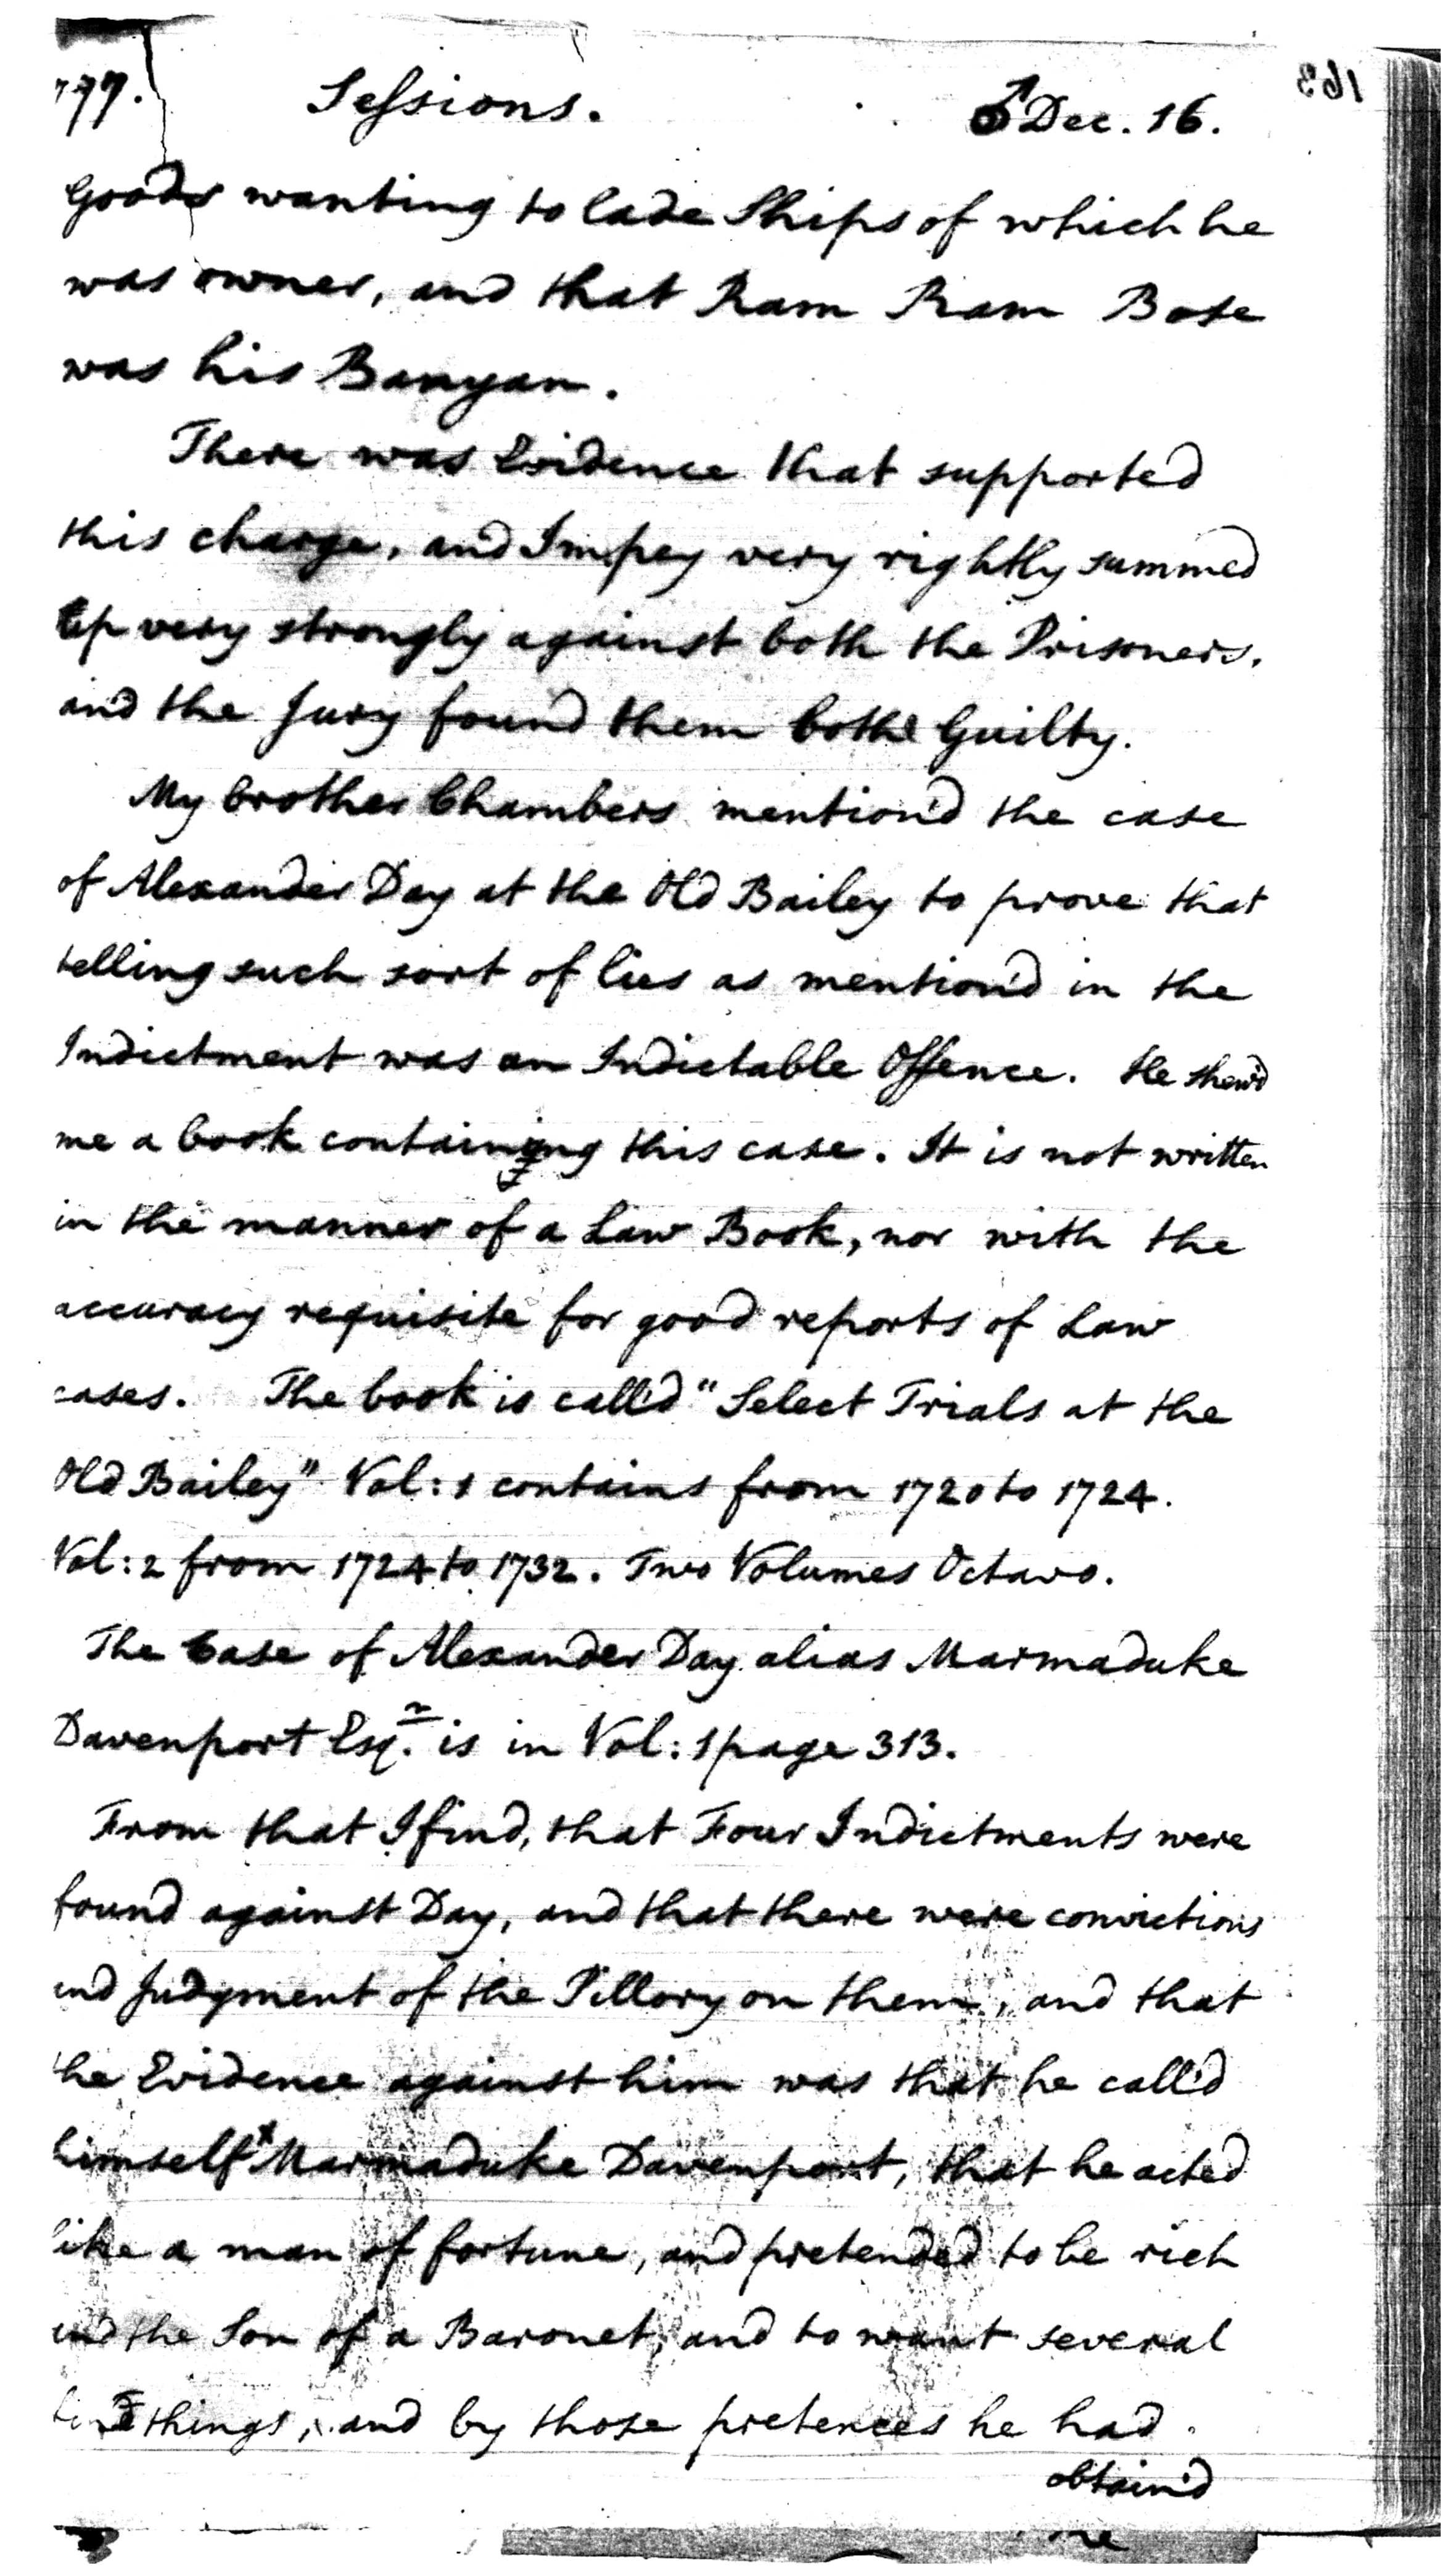 777. Sessions. ♂ Dec. 16.
Goods wanting to lade Ships of which he
was owner, and that Ram Ram Bose
was his Banyan.
There was Evidence that supported
this charge, and Impey very rightly summed
up very strongly against both the Prisoners,
and the Jury found them both Guilty.
My brother Chambers mention'd the case
of Alexander Day at the Old Bailey to prove that
telling such sort of lies as mention'd in the
Indictment was an Indictable Offence. He shew'd
me a book containing this case. It is not written
in the manner of a Law Book, nor with the
accuracy requisite for good reports of Law
cases. The book is call'd "Select Trials at the
Old Bailey" Vol: 1 contains from 1720 to 1724.
Vol: 2 from 1724 to 1732. Two Volumes Octavo.
The Case of Alexander Day alias Marmaduke
Davenport Esqr. is in Vol: 1 page 313.
From that I find, that Four Indictments were
found against Day, and that there were convictions
and Judgment of the Pillory on them, and that
the Evidence against him was that he call'd
himself x Marmaduke Davenport, that he acted
like a man of fortune, and pretended to be rich
and the Son of a Baronet, and to want several
things, and by those pretences he had
obtain'd